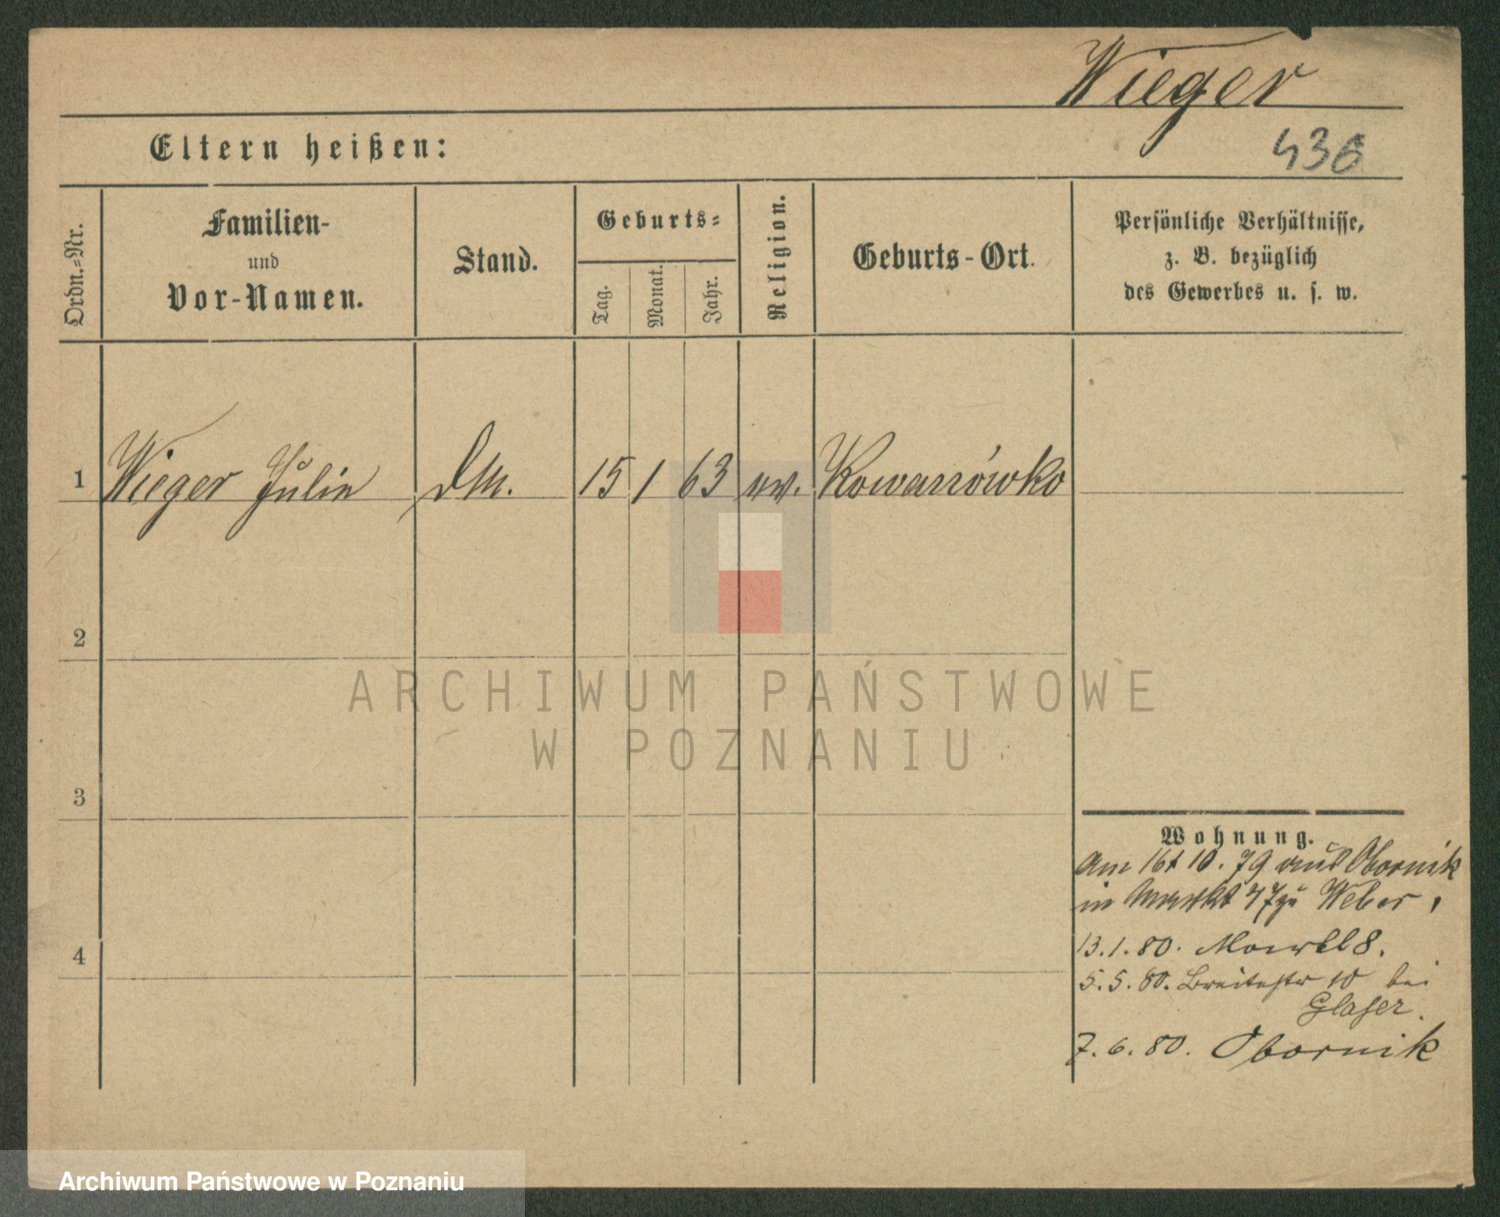 Wieger
Eltern heißen:
436
Ordn.-Nr.
Familien-
und
Vor-Namen.
Stand.
Geburts-
Tag.
Monat.
Jahr.
Religion.
Geburts-Ort.
Persönliche Verhältnisse,
z. B. bezüglich
des Gewerbes u. s. w.
1 Wieger Julie 15 1 63 ev. Kowanówko
2
3
4
Wohnung.
am 16t 10. 79 aus Obornik
in Markt 47 zu Weber,
13.1.80. 8.
5.5.80. Breitestr 10 bei
Glaser.
7.6.80. Obornik
ARCHIWUM PAŃSTWOWE
W POZNANIU
Archiwum Państwowe w Poznaniu